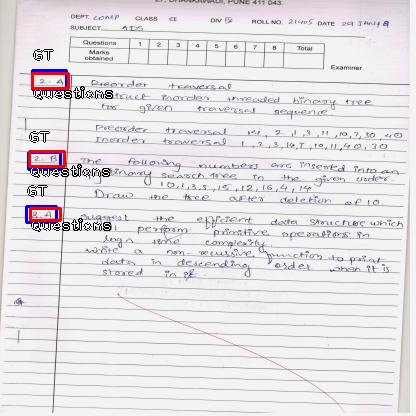 DHANKAWADI, PUNE 411 043.
DEPT. COMP CLASS SE DIV IV ROLL NO. 21405 DATE
SUBJECT ADS
Questions 1 2 3 4 5 6 7 8 Total
Marks obtained
Examiner
GT
2. A Preorder traversal
Questions inorder threaded binary tree
for given traversal sequence
Preorder traversal 14, 2, 1, 3, 11, 10, 7, 30, 40
GT
Inorder traversal 1, 2, 3, 14, 7, 10, 11, 40, 30
2. B The following numbers are inserted into an
Questions binary search tree in the given order.
10, 1, 3, 5, 15, 12, 16, 4, 14
GT
Draw the tree after deletion of 10.
3. A suggest the efficient data structure which
Questions perform primitive operations in
logn time complexity.
write a non-recursive function to print
data in descending order when it is
stored in it.